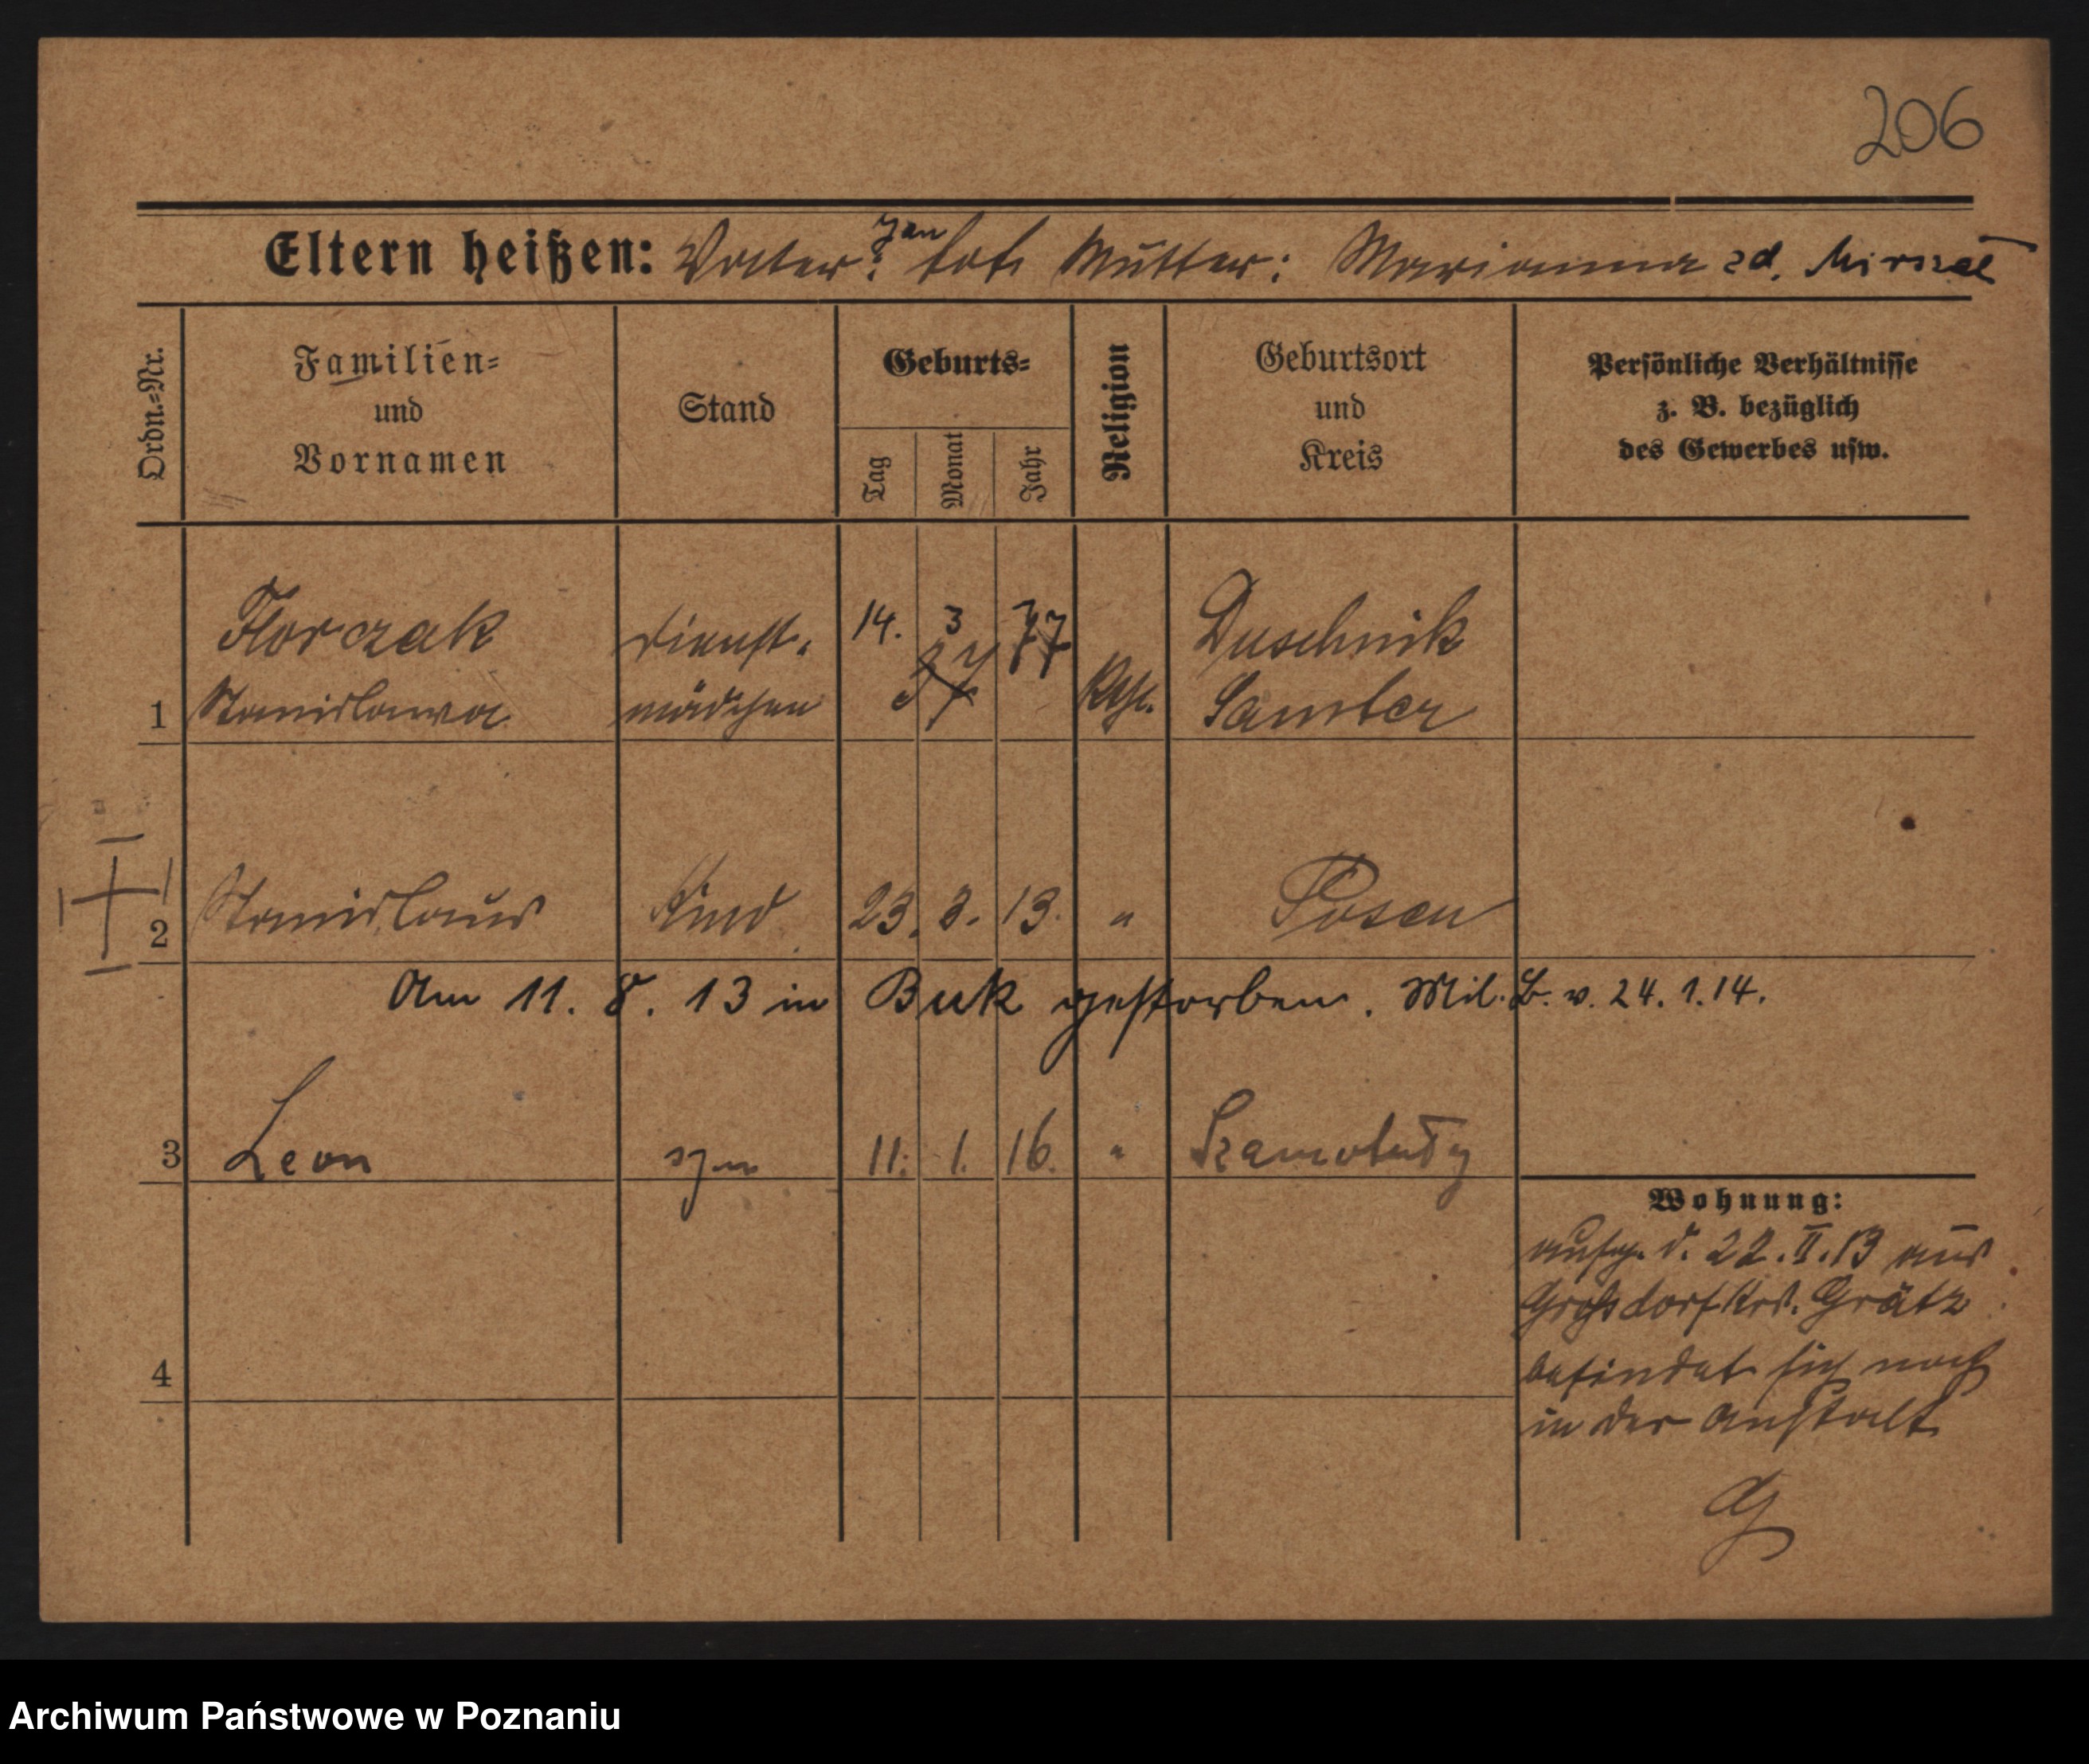 206
Eltern heißen: Vater: Jan tot Mutter: Marianna zd.
Ordn.-Nr.
Familien-
und
Vornamen
Stand
Geburts-
Tag
Monat
Jahr
Religion
Geburtsort
und
Kreis
Persönliche Verhältnisse
z. B. bezüglich
des Gewerbes usw.
Florczak Dienst- 14. 3 77 Duschnik
1 Stanislawa mädchen Kath. Samter
2 Stanislaus Kind 23. 3. 13. " Posen
Am 11. 8. 13 in Buk gestorben. Mil. B. v. 24. 1. 14.
3 Leon syn 11. 1. 16. " Szamotuły
4
Wohnung:
d. 22. II. 13 aus
Großdorf Krs. Grätz
befindet sich noch
in der Anstalt
G
Archiwum Państwowe w Poznaniu